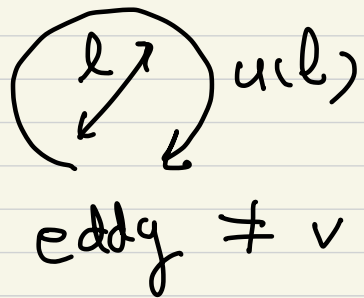 l u(l)
eddy ≠ v